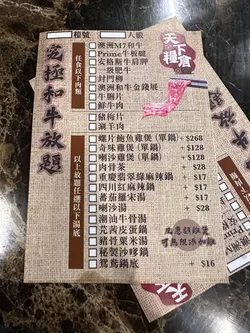 檯號 人數
究極和牛放題
任食以下肉類
澳洲M7和牛
Prime牛板腱
安格斯牛肩胛
一級肥牛
封門柳
澳洲和牛金錢展
牛脷片
鮮牛肉
豬梅片
涮羊肉
以上放題任選以下湯底
螺片鮑魚雞煲(單鍋) +$268
奇味雞煲(單鍋) +$128
喇沙雞煲(單鍋) +$128
肉骨茶 +$28
重慶翡翠綠麻辣鍋 +$17
四川紅麻辣鍋 +$17
蕃茄羅宋湯 +$17
喇沙湯 +$28
潮油牛骨湯
芫茜皮蛋鍋
豬骨粟米湯
秘製沙嗲鍋
鴛鴦鍋底 +$16
凡惠顧雞煲
可無限添加雞
天下檯倉